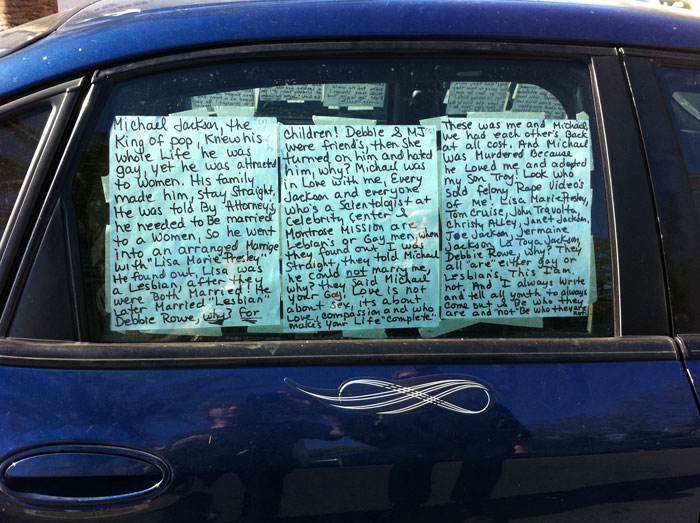 Michael Jackson, the
King of pop, Knew his
whole Life he was
gay, yet he was attracted
to Women. His family
made him, stay straight,
He was told By "Attorney's,
he needed to Be married
to a Women, So he went
into an arranged Marrige
with "Lisa Marie Presley"
He found out, Lisa was
a Lesbian, after they
were Both Married! He
later Married "Lesbian"
Debbie Rowe, why? For
children! Debbie & MJ
were friend's, then She
turned on him and hated
him, why? Michael was
in Love with me, Every
Jackson and everyone
who's a Scientologist at
Celebrity Center &
Montrose Mission are
Lebian's or Gay men, when
they found out I was
Straight, they told Michael
he could not marry me,
why? they Said Michael
your Gay. Love is not
about Sex, its about
Love, compassion and who
make's your Life "complete"
These was me and Michael,
we had each other's Back
at all cost. And Michael
was Murdered Because
he Loved me and adopted
my Son Troy. Look who
Sold felony Rape Video's
of me! Lisa Marie Presley,
Tom Cruise, John Travolta
Christy Haley, Janet Jackson,
Joe Jackson, Jermaine
Jackson, La Toya Jackson,
Debbie Rowe, why? They
all "are" either Gay or
Lesbian's, This I am
not. And I always write
and tell all youth, to always
come out and Be who they
are and not "Be who they are
not.